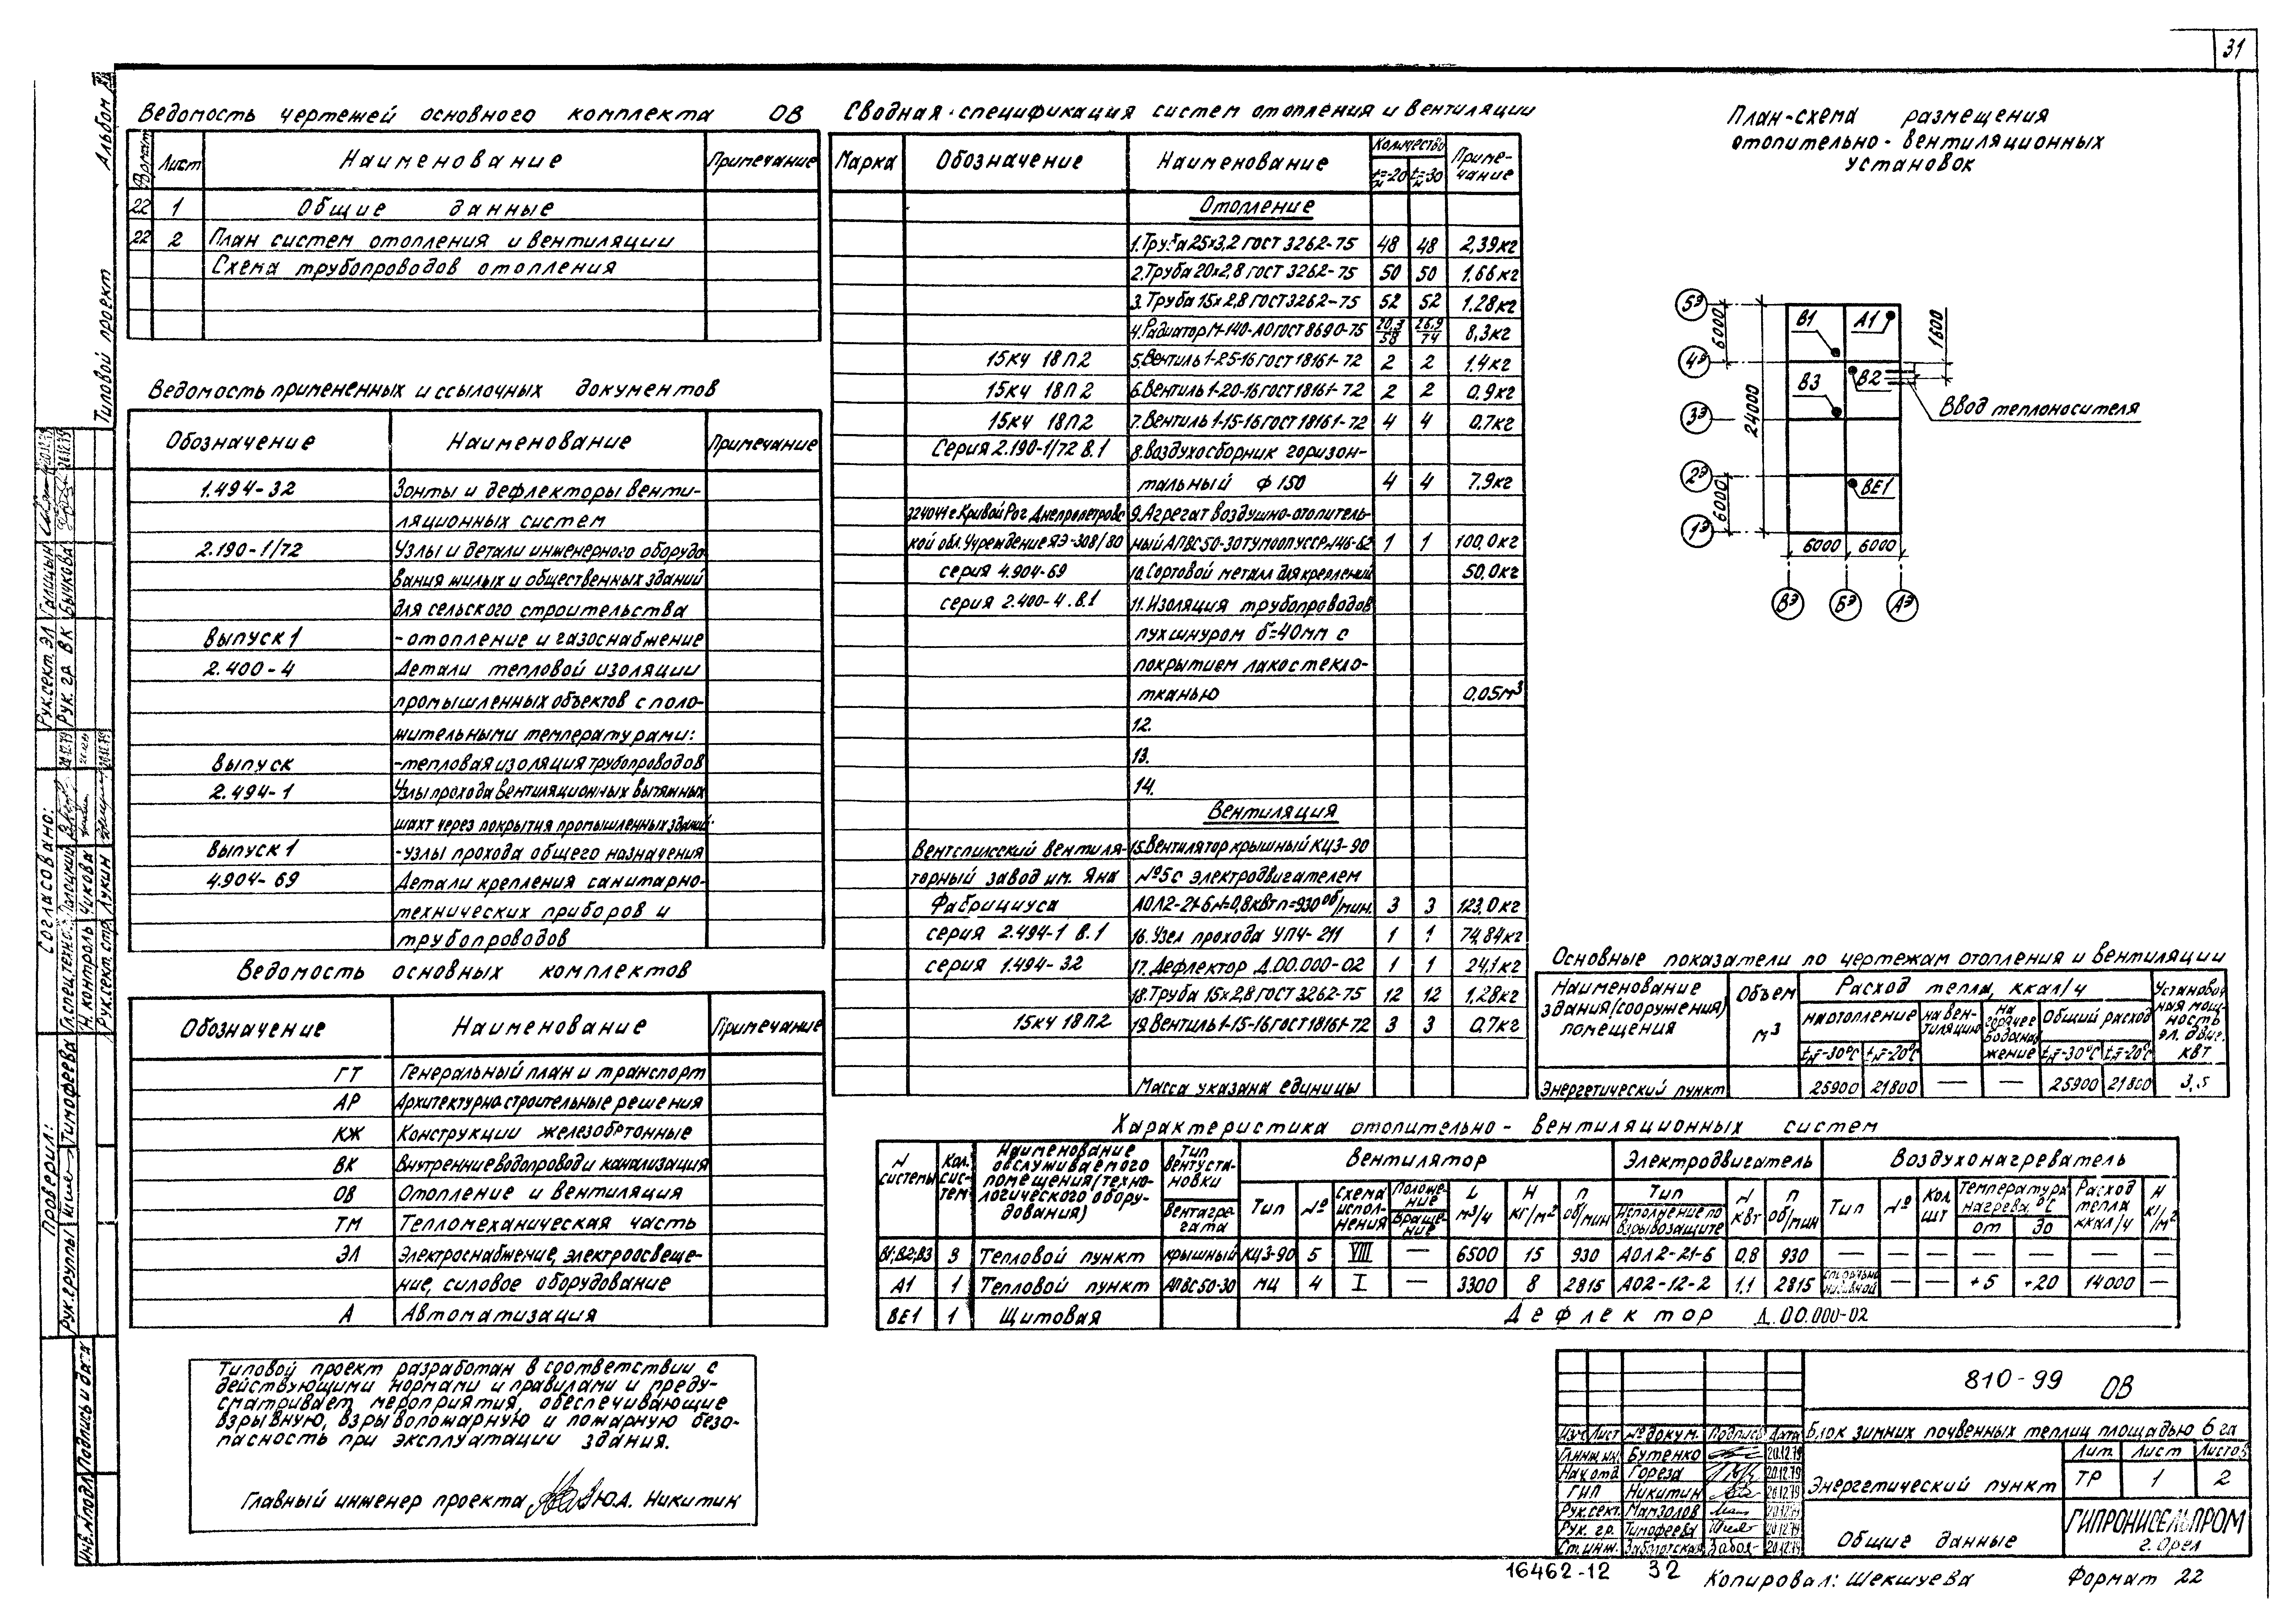 31
Альбом
Типовой проект
Ведомость чертежей основного комплекта ОВ
Формат Лист Наименование Примечание
22 1 Общие данные
22 2 План систем отопления и вентиляции
Схема трубопроводов отопления
Ведомость примененных и ссылочных документов
Обозначение Наименование Примечание
1.494-32 Зонты и дефлекторы венти-
ляционных систем
2.190-1/72 Узлы и детали инженерного оборудо
вания жилых и общественных зданий
для сельского строительства
Выпуск 1 -отопление и газоснабжение
2.400-4 Детали тепловой изоляции
промышленных объектов с поло-
жительными температурами:
Выпуск -тепловая изоляция трубопроводов
2.494-1 Узлы прохода вентиляционных вытяжных
шахт через покрытия промышленных зданий:
Выпуск 1 -узлы прохода общего назначения
4.904-69 Детали крепления санитарно-
технических приборов и
трубопроводов
Ведомость основных комплектов
Обозначение Наименование Примечание
ГТ Генеральный план и транспорт
АР Архитектурно-строительные решения
КЖ Конструкции железобетонные
ВК Внутренние водопровод и канализация
ОВ Отопление и вентиляция
ТМ Тепломеханическая часть
ЭЛ Электроснабжение, электроосвеще-
ние, силовое оборудование
А Автоматизация
Типовой проект разработан в соответствии с
действующими нормами и правилами и преду-
сматривает мероприятия, обеспечивающие
взрывную, взрывопожарную и пожарную безо-
пасность при эксплуатации здания.
Главный инженер проекта Ю.А. Никитин
Сводная спецификация систем отопления и вентиляции
Марка Обозначение Наименование Количество Приме-
чание
tн=-20 tн=-30
Отопление
1. Труба 25х3,2 ГОСТ 3262-75 48 48 2,39кг
2. Труба 20х2,8 ГОСТ 3262-75 50 50 1.66кг
3. Труба 15х2,8 ГОСТ 3262-75 52 52 1.28кг
4. Радиатор М-140-АО ГОСТ 8690-75 20,3/58 26,9/74 8,3кг
15кч 18п2 5. Вентиль 1-25-16 ГОСТ 18161-72 2 2 1.4кг
15кч 18п2 6. Вентиль 1-20-16 ГОСТ 18161-72 2 2 0.9кг
15кч 18п2 7. Вентиль 1-15-16 ГОСТ 18161-72 4 4 0.7кг
Серия 2.190-1/72 В.1 8. Воздухосборник горизон-
тальный ф 150 4 4 7.9кг
324044 г. Кривой Рог Днепропетровс 9. Агрегат воздушно-отопитель-
кой обл. Учреждение ЯЭ-308/80 ный АПВС50-30 ТУ МООП УССР №46-62 1 1 100,0кг
серия 4.904-69 10. Сортовой металл для креплений 50.0кг
серия 2.400-4. В.1 11. Изоляция трубопроводов
пухшнуром б=40мм с
покрытием лакостекло-
тканью 0.05м³
12.
13.
14.
Вентиляция
Вентспилсский вентиля- 15. Вентилятор крышный КЦ3-90
торный завод им. Яна №5 с электродвигателем
Фабрициуса АОЛ2-21-6 N=0,8квт n=930 об/мин. 3 3 123,0кг
серия 2.494-1 В.1 16. Узел прохода УПЧ-211 1 1 74,84кг
серия 1.494-32 17. Дефлектор Д.00.000-02 1 1 24,1кг
18. Труба 15х2,8 ГОСТ 3262-75 12 12 1,28кг
15кч 18п2 19. Вентиль 1-15-16 ГОСТ 18161-72 3 3 0.7кг
Масса указана единицы
План-схема размещения
отопительно-вентиляционных
установок
5Э 4Э 3Э 2Э 1Э
6000 24000 6000 1600
В1 А1
В3 В2
Ввод теплоносителя
ВЕ1
6000 6000
ВЭ БЭ АЭ
Основные показатели по чертежам отопления и вентиляции
Наименование здания (сооружения) помещения Объем м³ Расход тепла, ккал/ч Установоч ная мощ- ность эл. двиг. квт
на отопление на вен- тиляцию на горячее водоснаб жение Общий расход
tн=-30°С tн=-20°С tн=-30°С tн=-20°С
Энергетический пункт 25900 21800 — — 25900 21800 3,5
Характеристика отопительно-вентиляционных систем
N системы Кол. сис- тем Наименование обслуживаемого помещения (техно- логического обору- дования) Тип вентуста- новки Вентагре- гата Вентилятор Электродвигатель Воздухонагреватель
Тип № Схема испол- нения Положе- ние Враще- ние L м³/ч H кг/м² n об/мин Тип Исполнение по взрывозащите N квт n об/мин Тип № Кол. шт Температура нагрева °С от до Расход тепла ккал/ч H кг/м²
В1;В2;В3 3 Тепловой пункт крышный КЦ3-90 5 VIII — 6500 15 930 АОЛ2-21-6 0,8 930 — — — — — — —
А1 1 Тепловой пункт АПВС50-30 МЦ 4 I — 3300 8 2815 АО2-12-2 1,1 2815 — — +5 +20 14000 —
ВЕ1 1 Щитовая Дефлектор Д.00.000-02
810-99 ОВ
Блок зимних почвенных теплиц площадью 6 га
Изм. Лист № докум. Подпись Дата
Гл.инж.ин. Бутенко 20.12.79
Нач.отд. Гореза 20.12.79
ГИП Никитин 26.12.79
Рук.сект. Мамзолов 20.12.79
Рук. гр. Тимофеева 20.12.79
Ст.инж. Заболотская 20.12.79
Энергетический пункт
Лит. Лист Листов
ТР 1 2
Общие данные
ГИПРОНИСЕЛЬПРОМ
г. Орел
16462-12 32
Копировал: Шекшуева Формат 22
Согласовано:
Рук.сект. ЭЛ Галицын 20.12.79
Рук. гр. ВК Бычкова 26.12.79
Гл.спец.техно. 20.12.79
Н. контроль Чижова
Рук.сект.стр. Лукин 20.12.79
Проверил:
Рук.группы Тимофеева
Инв.№подл. Подпись и дата